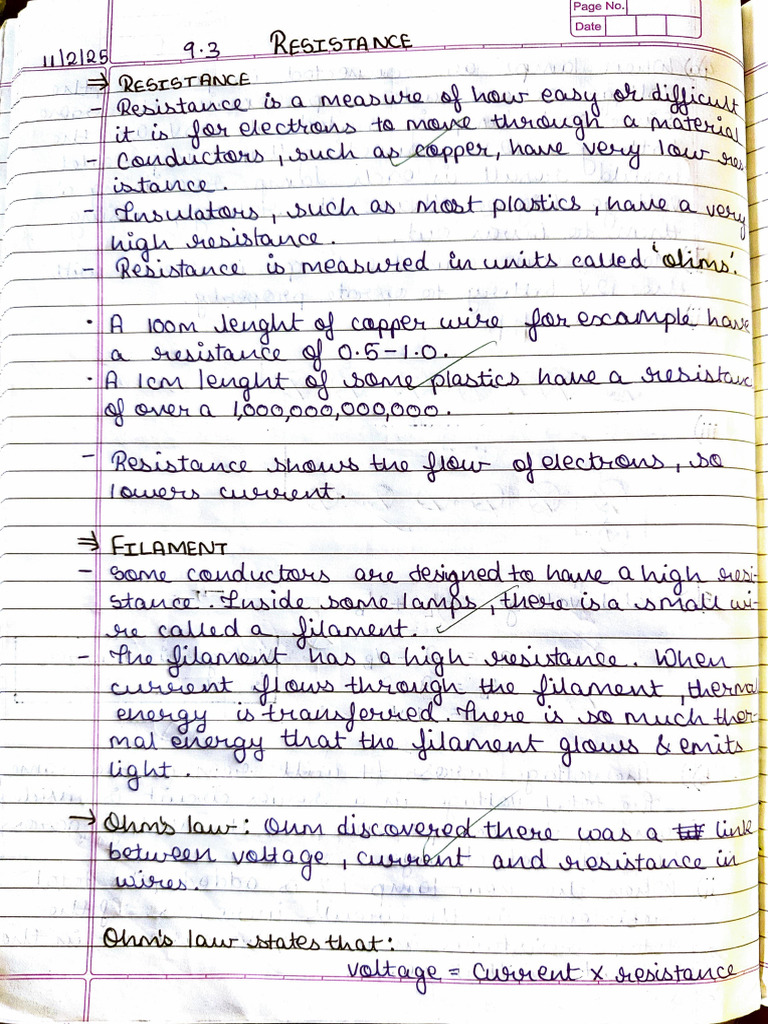 Page No.
Date
11/2/25 9.3 RESISTANCE
⇒ RESISTANCE
- Resistance is a measure of how easy or difficult
it is for electrons to move through a material
- Conductors, such as copper, have very low res
istance.
- Insulators, such as most plastics, have a very
high resistance.
- Resistance is measured in units called 'ohms'.
• A 100m lenght of copper wire for example have
a resistance of 0.5-1.0.
• A 1cm lenght of some plastics have a resistanc
of over a 1,000,000,000,000.
- Resistance shows the flow of electrons, so
lowers current.
⇒ FILAMENT
- Some conductors are designed to have a high resi-
stance. Inside some lamps, there is a small wi-
re called a filament.
- The filament has a high resistance. When
current flows through the filament, thermal
energy is transferred. There is so much ther-
mal energy that the filament glows & emits
light.
→ Ohm's law: Ohm discovered there was a link
between voltage, current and resistance in
wires.
Ohm's law states that:
voltage = current × resistance